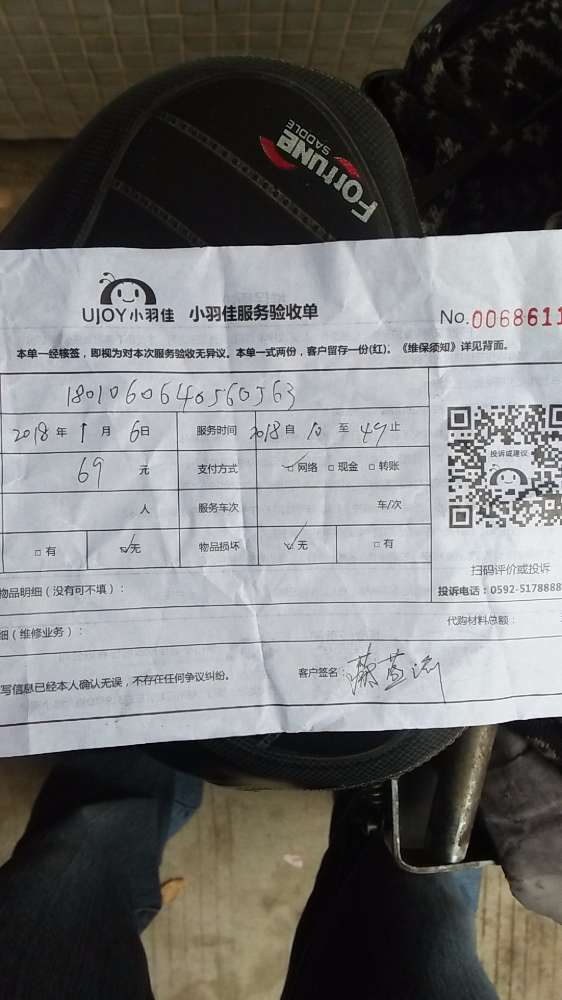 FORTUNE
SADDLE
UJOY小羽佳 小羽佳服务验收单 No.0068611
本单一经核签，即视为对本次服务验收无异议。本单一式两份，客户留存一份(红)。《维保须知》详见背面。
18010606640560563
2018年1月6日 服务时间 2018自10至49止
投诉或建议
69元 支付方式 ☑网络 □现金 □转账
人 服务车次 车/次
□有 ☑无 物品损坏 ☑无 □有
扫码评价或投诉
物品明细（没有可不填）： 投诉电话：0592-5178888
细（维修业务）： 代购材料总额：
写信息已经本人确认无误，不存在任何争议纠纷。 客户签名：